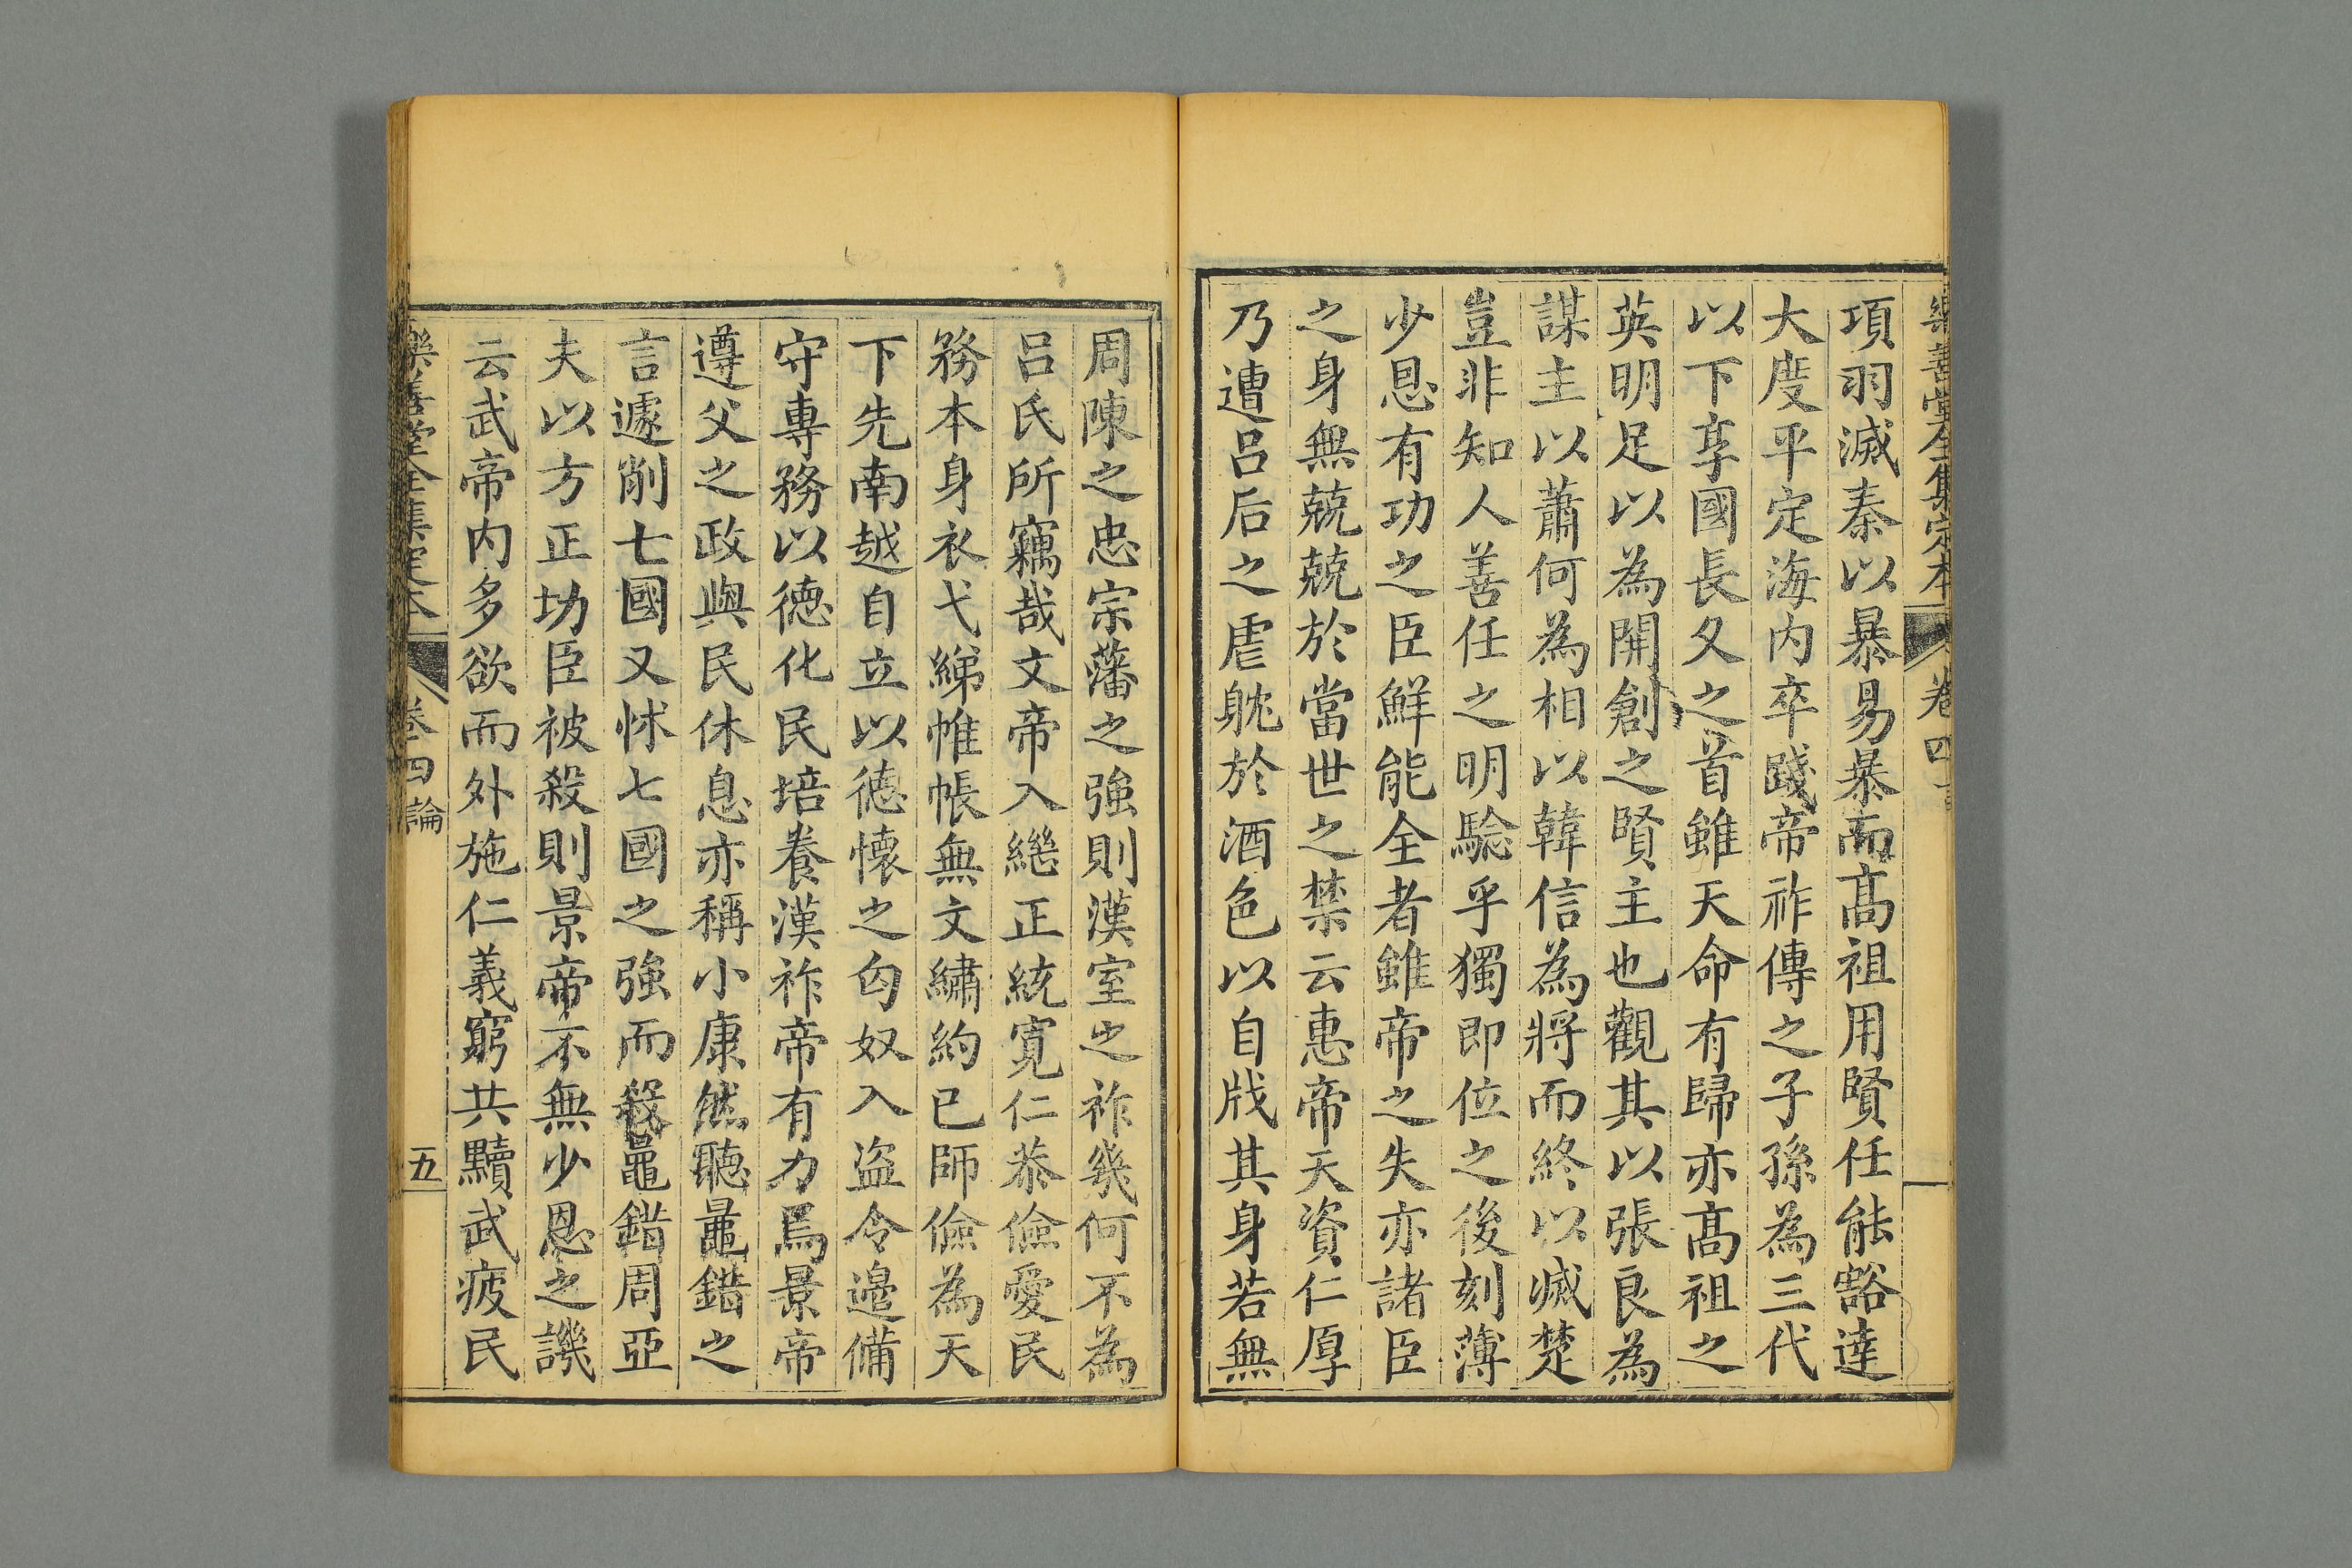 樂善堂全集定本 卷四
項羽滅秦以暴易暴而髙祖用賢任能豁達
大度平定海内卒踐帝祚傳之子孫為三代
以下享國長久之首雖天命有歸亦髙祖之
英明足以為開創之賢主也觀其以張良為
謀主以蕭何為相以韓信為將而終以滅楚
豈非知人善任之明騐乎獨即位之後刻薄
少恩有功之臣鮮能全者雖帝之失亦諸臣
之身無兢兢於當世之禁云惠帝天資仁厚
乃遭呂后之虐躭於酒色以自戕其身若無
周陳之忠宗藩之強則漢室之祚幾何不為
呂氏所竊哉文帝入繼正統寛仁恭儉愛民
務本身衣弋綈帷帳無文繡約已師儉為天
下先南越自立以德懷之匈奴入盜令邊備
守專務以德化民培養漢祚帝有力焉景帝
遵父之政與民休息亦稱小康然聽鼂錯之
言遽削七國又怵七國之強而殺鼂錯周亞
夫以方正功臣被殺則景帝不無少恩之譏
云武帝内多欲而外施仁義窮兵黷武疲民
樂善堂全集定本 卷四 論 五